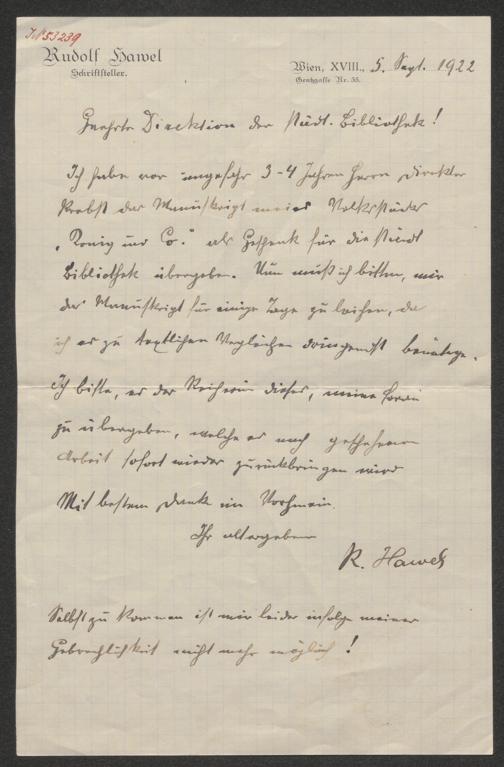 JN 53239
Rudolf Hawel
Schriftsteller.
Wien, XVIII., 5. Sept. 1922
Gentzgasse Nr. 55.
Geehrte Direktion der städt. Bibliothek!
Ich habe vor ungefähr 3-4 Jahren Herrn Direktor
Probst das Manuskript meines Volksstückes
" & Co." als Geschenk für die städt
Bibliothek übergeben. Nun muß ich bitten, mir
das Manuskript für einige Tage zu leihen, da
ich es zu textlichen Vergleichen dringendst benötige.
Ich bitte, es der dieses, meine Frau
zu übergeben, welche es nach geschehener
Arbeit sofort wieder zurückbringen wird
Mit bestem Dank im Vorhinein.
Ihr altergebener
R. Hawel
Selbst zu kommen ist mir leider infolge meiner
Gebrechlichkeit nicht mehr möglich!